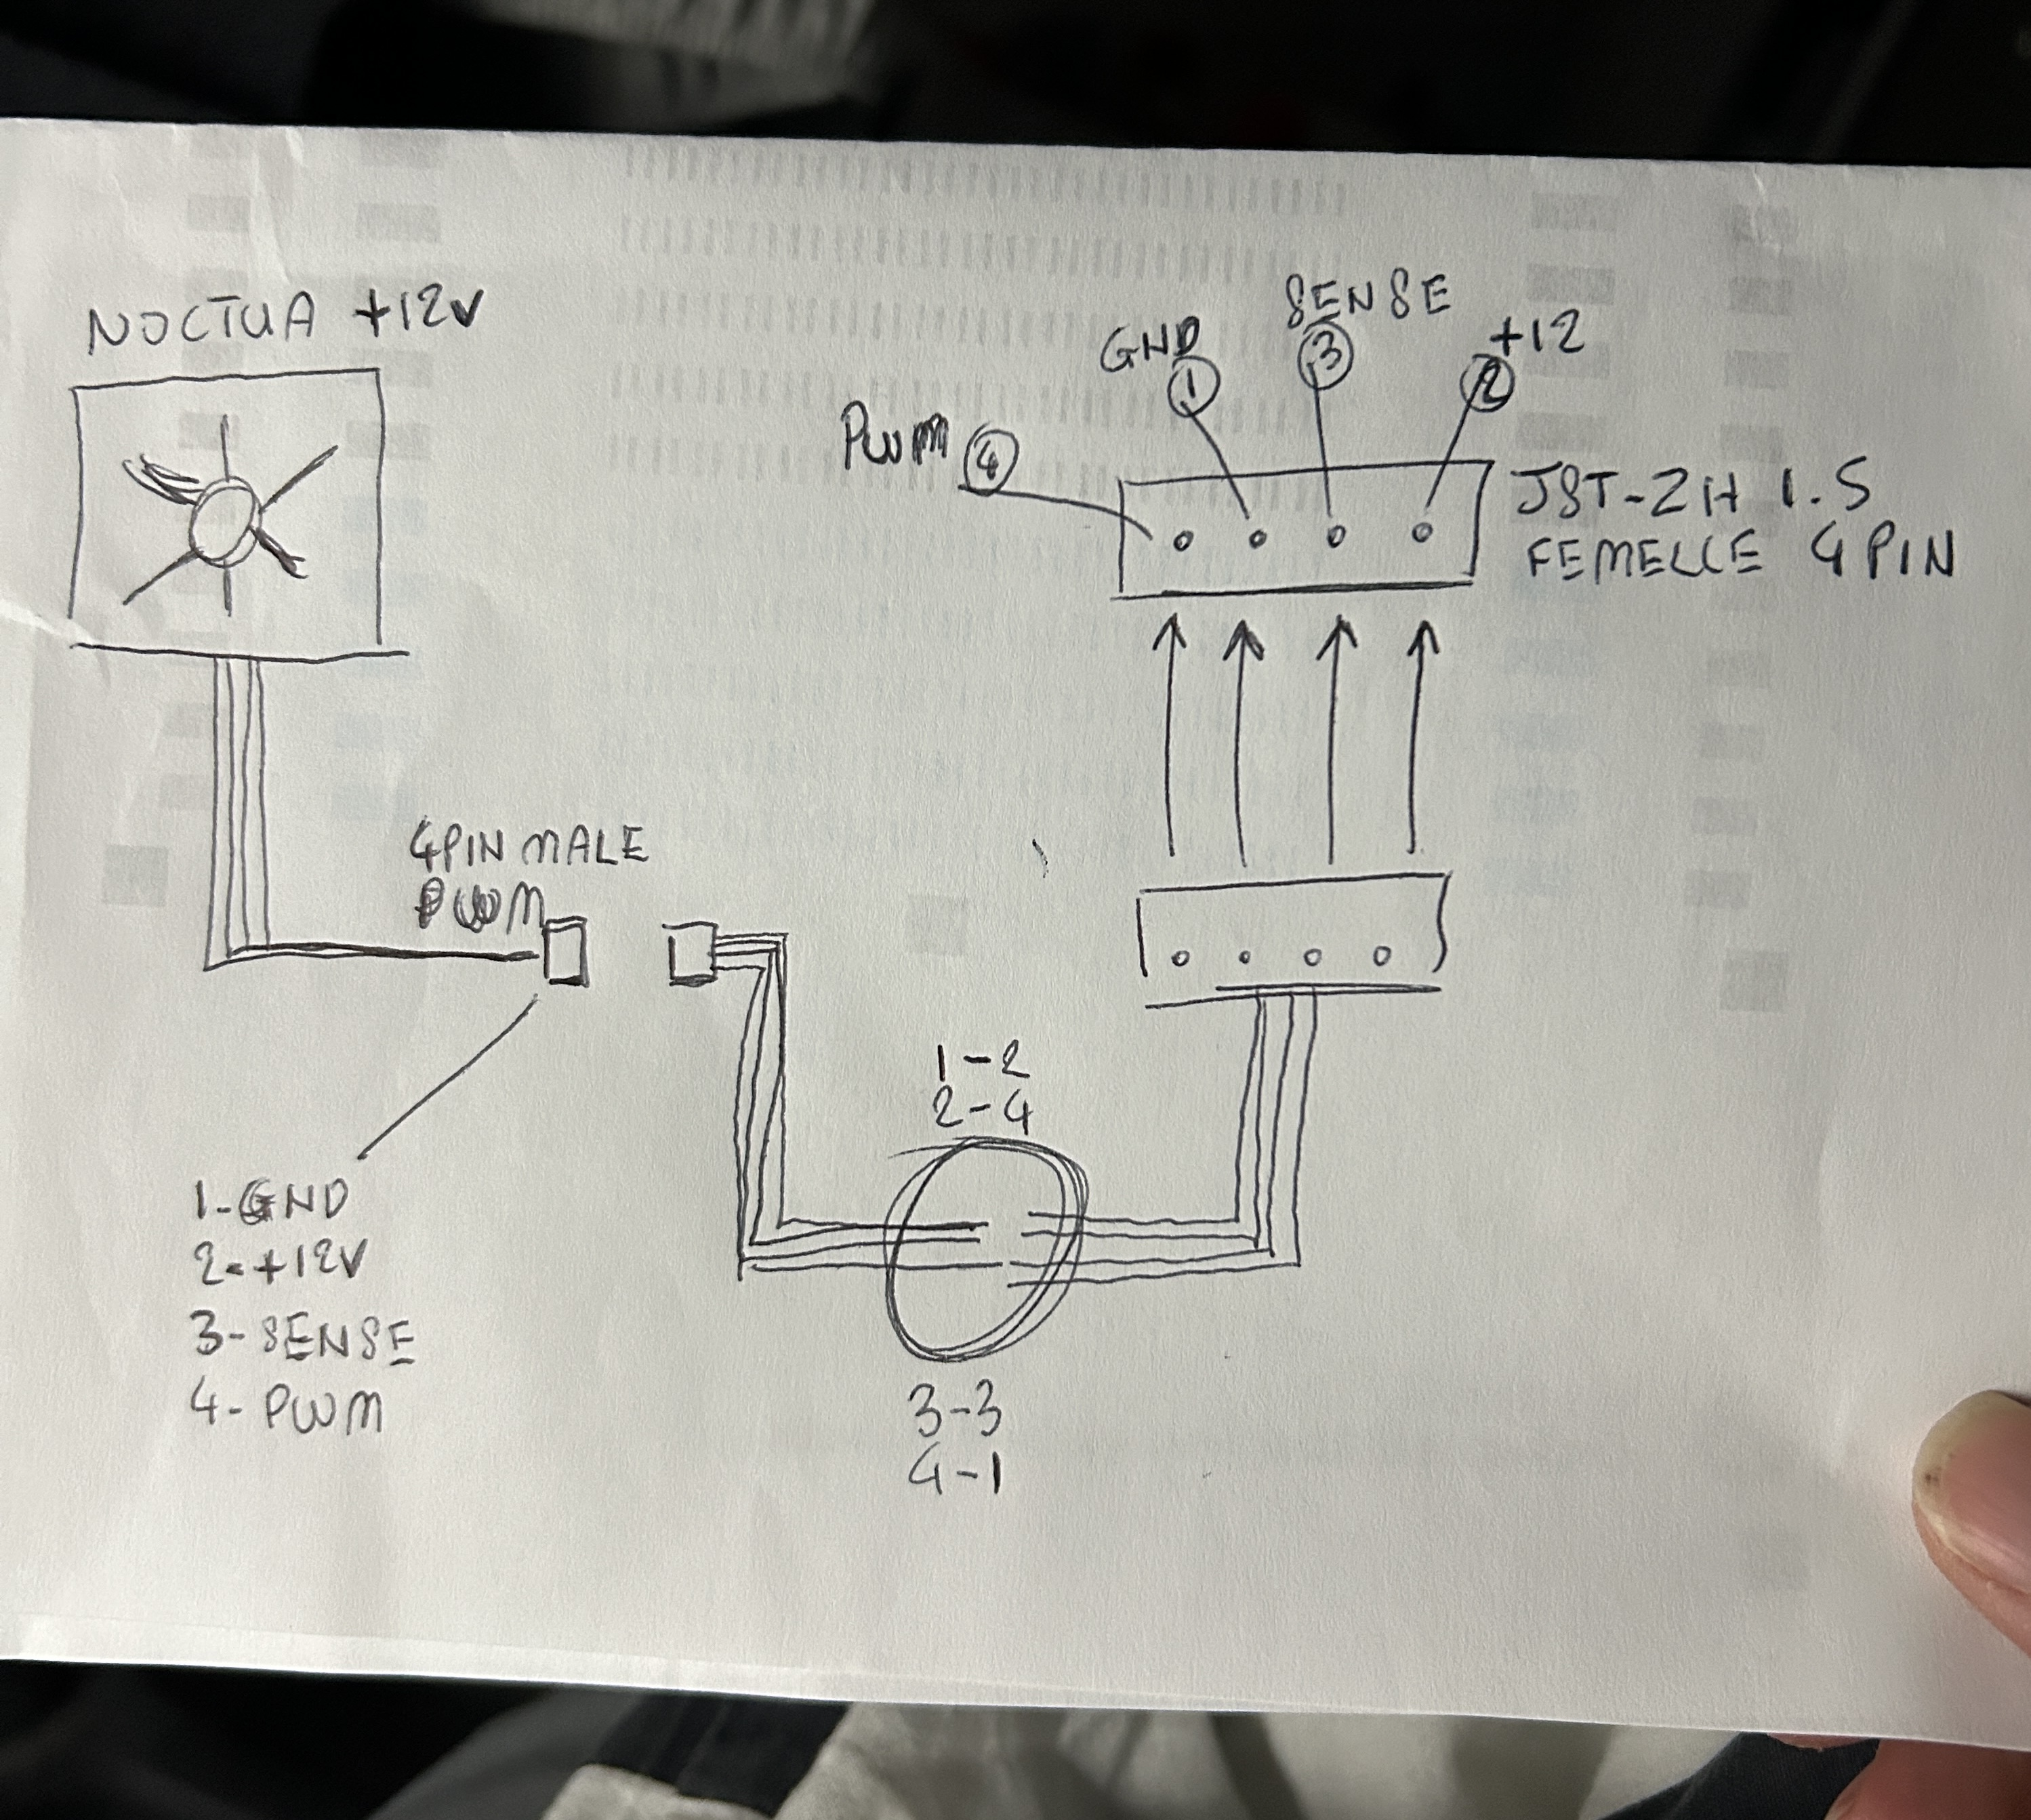 NOCTUA +12V
SENSE
GND
3
+12
1
2
PWM 4
JST-ZH 1.5
FEMELLE 4 PIN
4PIN MALE
PWM
1-2
2-4
1-GND
2-+12V
3-SENSE
4-PWM
3-3
4-1